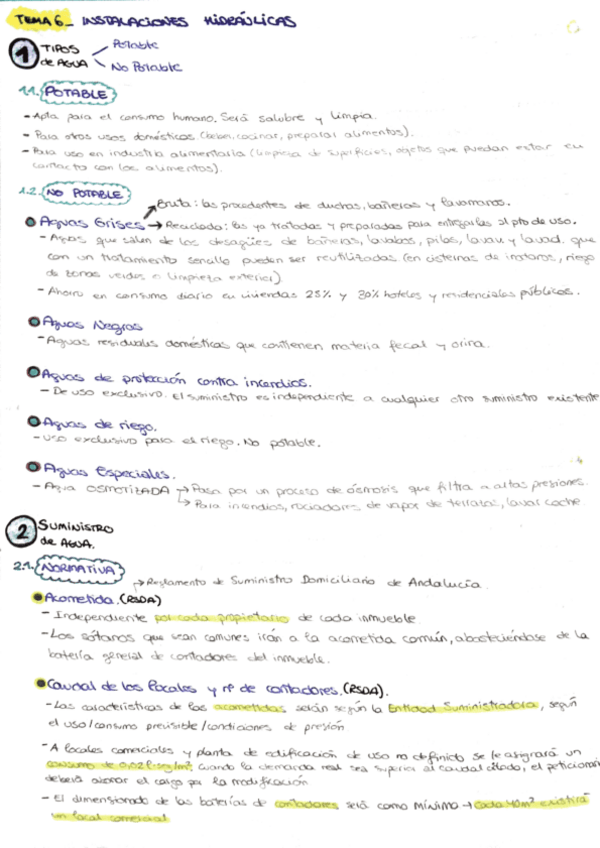 TEMA 6_ INSTALACIONES HIDRÁULICAS
1 TIPOS de AGUA
Potable
No Potable
1.1. POTABLE
- Apta para el consumo humano. Será salubre y limpia.
- Para otros usos domésticos (beber, cocinar, preparar alimentos).
- Para uso en industria alimentaria (limpieza de superficies, objetos que puedan estar en
contacto con los alimentos).
1.2. NO POTABLE
Bruta: las procedentes de duchas, bañeras y lavamanos.
Aguas Grises → Reciclada: las ya tratadas y preparadas para entregarlas al pto de uso.
- Aguas que salen de los desagües de bañeras, lavabos, pilas, lavav. y lavad. que
con un tratamiento sencillo pueden ser reutilizadas (en cisternas de inodoros, riego
de zonas verdes o limpieza exterior).
- Ahorro en consumo diario en viviendas 25% y 30% hoteles y residenciales públicos.
Aguas Negras
- Aguas residuales domésticas que contienen materia fecal y orina.
Aguas de protección contra incendios.
- De uso exclusivo. El suministro es independiente a cualquier otro suministro existente
Aguas de riego.
- Uso exclusivo para el riego. No potable.
Aguas Especiales.
- Agua OSMOTIZADA → Pasa por un proceso de ósmosis que filtra a altas presiones.
→ Para incendios, rociadores de vapor de terrazas, lavar coche
2 SUMINISTRO de AGUA.
2.1. NORMATIVA
→ Reglamento de Suministro Domiciliario de Andalucía.
Acometida. (RSDA)
- Independiente por cada propietario de cada inmueble.
- Los sótanos que sean comunes irán a la acometida común, abasteciéndose de la
batería general de contadores del inmueble.
Caudal de los locales y nº de contadores. (RSDA).
- Las características de las acometidas serán según la Entidad Suministradora, según
el uso/consumo previsible/condiciones de presión
- A locales comerciales y planta de edificación de uso no definido se le asignará un
consumo de 0.02 l·seg/m², cuando la demanda real sea superior al caudal citado, el peticionario
deberá abonar el cargo por la modificación
- El dimensionado de las baterías de contadores será como MÍNIMO → cada 40m² existirá
un local comercial